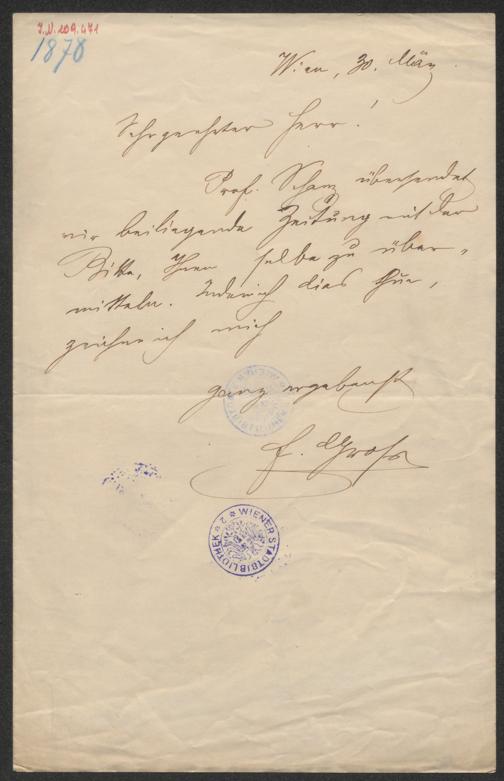 J.N. 109.471
1878
Wien, 30. März
Sehr geehrter Herr!
Prof. Schanz übersendet
mir beiliegende Zeitung mit der
Bitte, Ihnen selbe zu über-
mitteln. Indem ich dies thue,
zeichne ich mich
ganz ergebenst
F. Gross
WIENER STADTBIBLIOTHEK